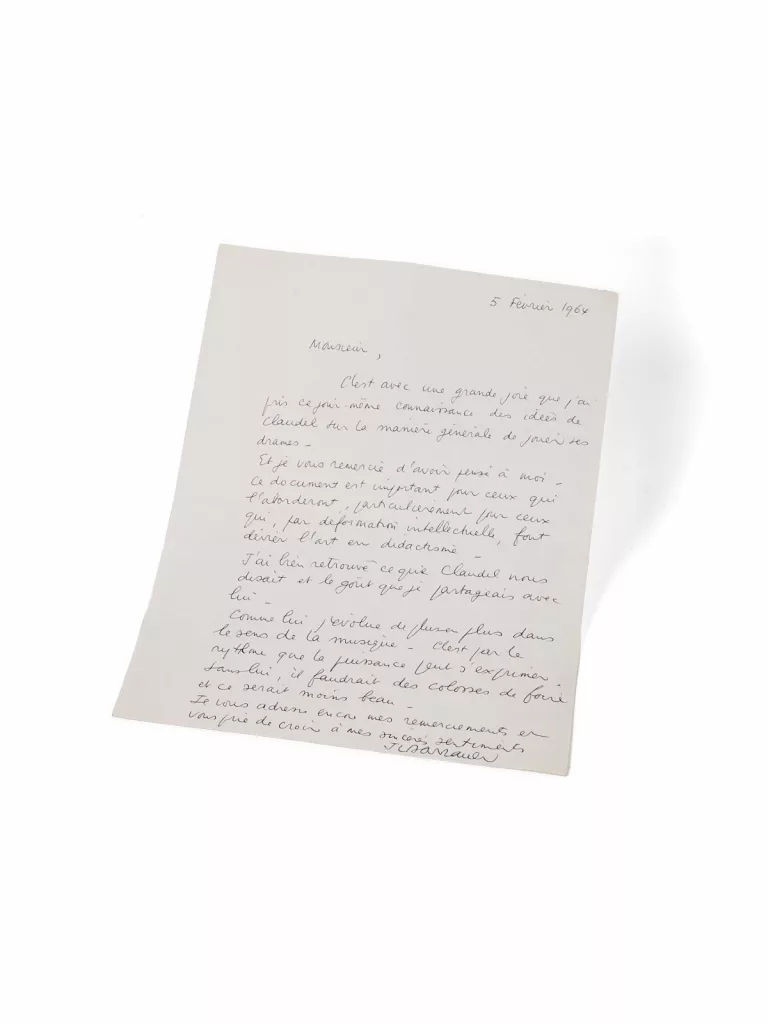 5 Février 1964
Monsieur,
C'est avec une grande joie que j'ai
pris ce jour-même connaissance des idées de
Claudel sur la manière générale de jouer ses
drames -
Et je vous remercie d'avoir pensé à moi -
Ce document est important pour ceux qui
l'aborderont, particulièrement pour ceux
qui, par déformation intellectuelle, font
dévier l'art en didactisme -
J'ai bien retrouvé ce que Claudel nous
disait et le goût que je partageais avec
lui -
Comme lui j'évolue de plus en plus dans
le sens de la musique - C'est par le
rythme que la puissance peut s'exprimer.
Sans lui, il faudrait des colosses de foire
et ce serait moins beau -
Je vous adresse encore mes remerciements et
vous prie de croire à mes sincères sentiments